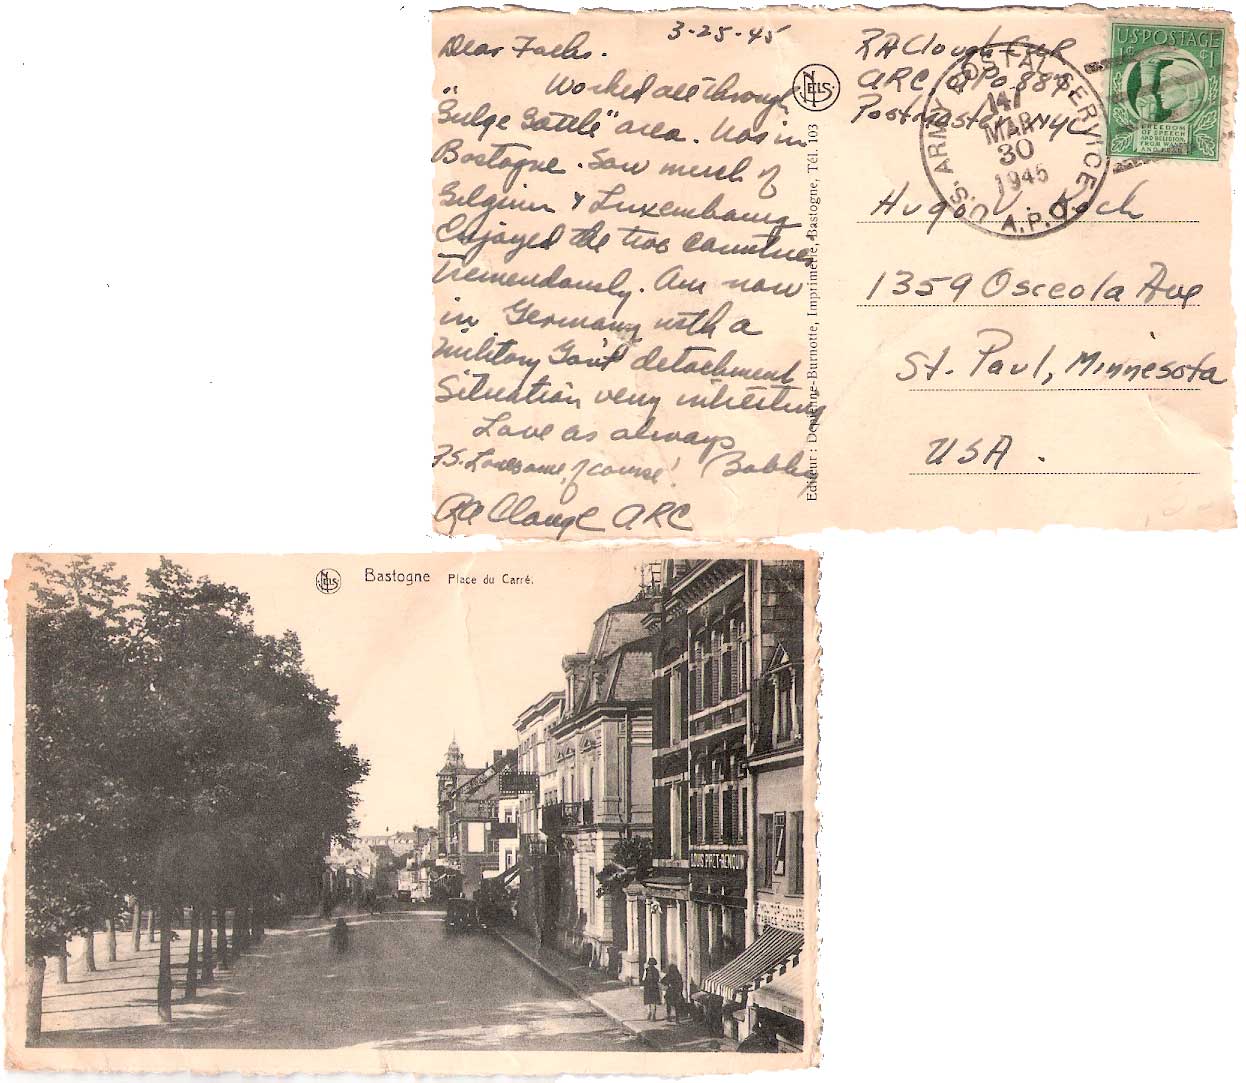 3-25-45
Dear Folks.
Worked all through
"Bulge Battle" area. Was in
Bastogne. Saw much of
Belgium & Luxembourg
Enjoyed the two countries
tremendously. Am now
in Germany with a
military Gov't detachment
Situation very interesting
Love as always
P.S. Lonesome, of course! Bobby
RA Clough ARC
NELS
Editeur : Depienne-Burnotte, Imprimerie, Bastogne, Tél. 103
RA Clough
ARC, APO 887
Postmaster NYC
U.S. ARMY POSTAL SERVICE
MAR
30
1945
A.P.O.
U.S. POSTAGE
1¢ ¢1
FREEDOM
OF SPEECH
AND RELIGION,
FROM WANT
AND FEAR
Hugo V. Koch
1359 Osceola Ave
St. Paul, Minnesota
USA.
NELS
Bastogne Place du Carré.
LOUIS PIRET-RENOUN